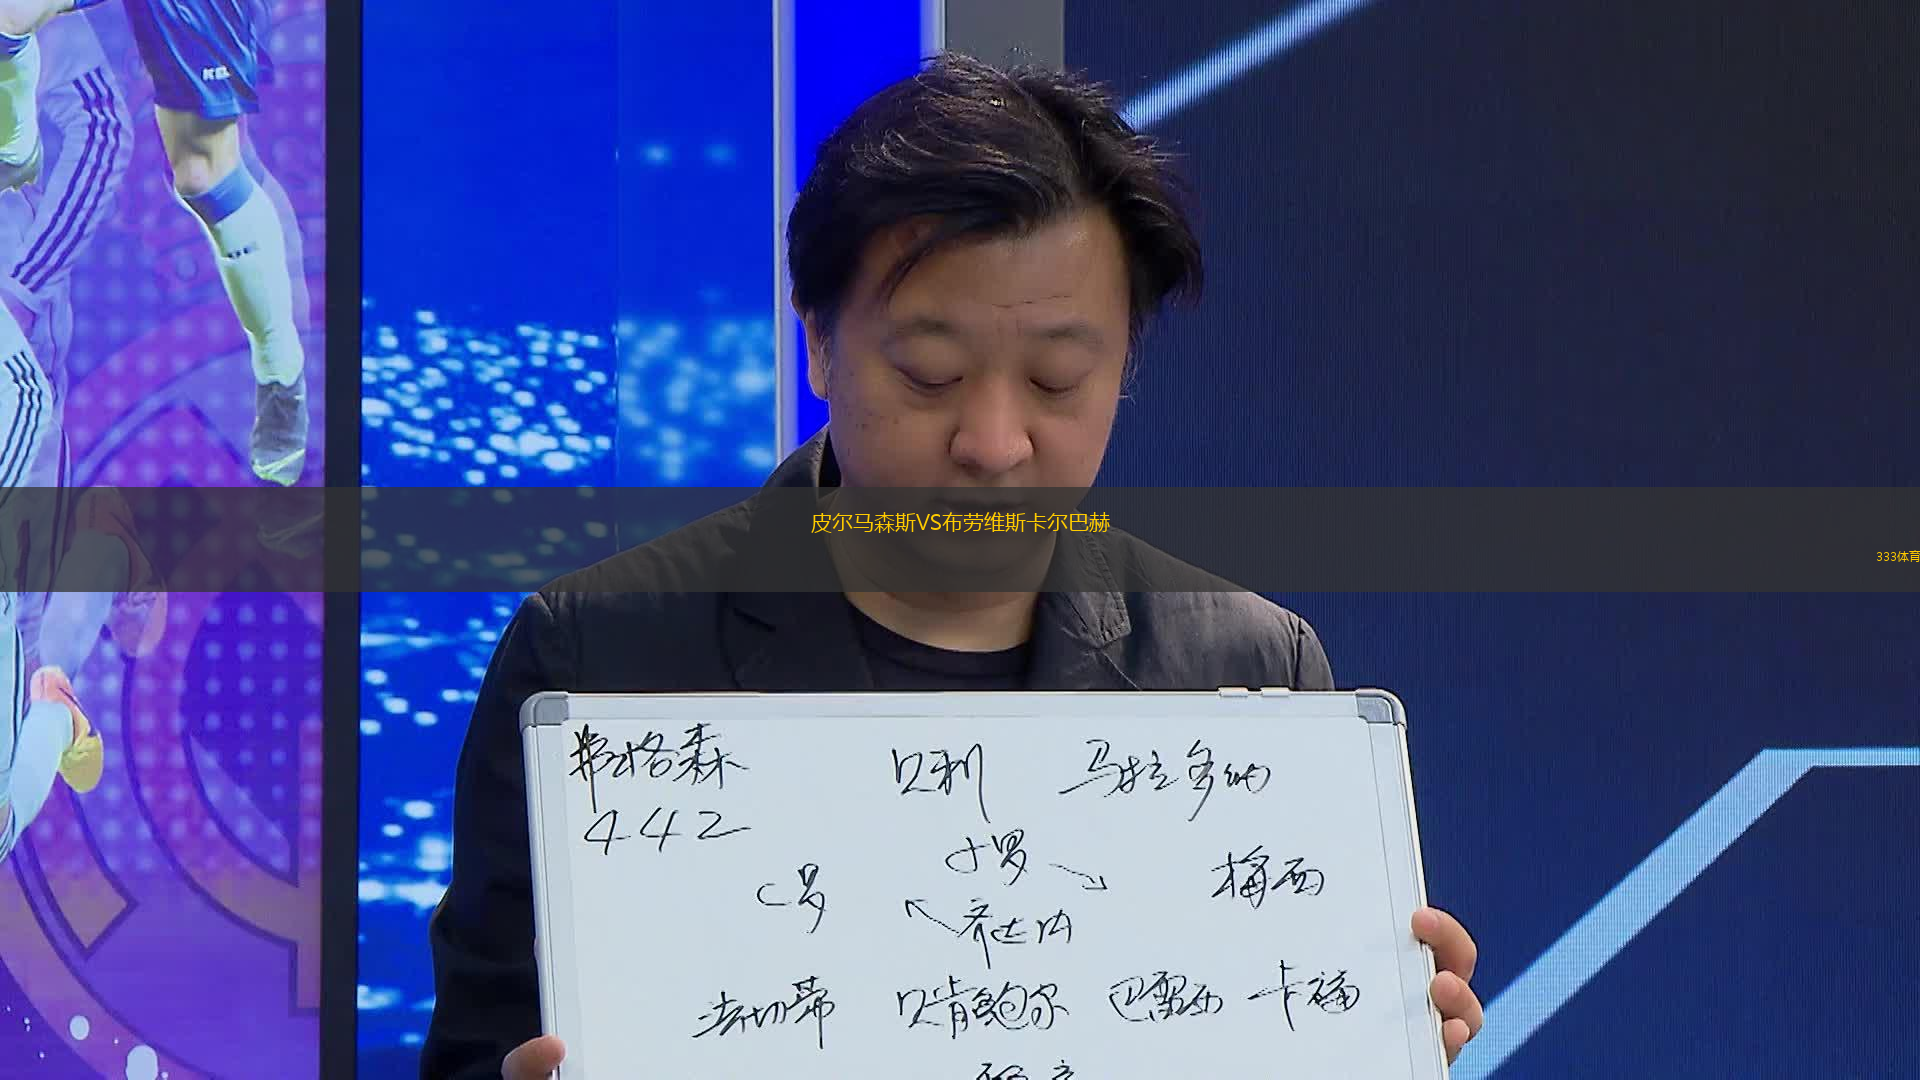 皮尔马森斯VS布劳维斯卡尔巴赫
333体育
弗格森 贝利 马拉多纳
442
小罗
C罗 梅西
齐达内
法切蒂 贝肯鲍尔 巴雷西 卡福